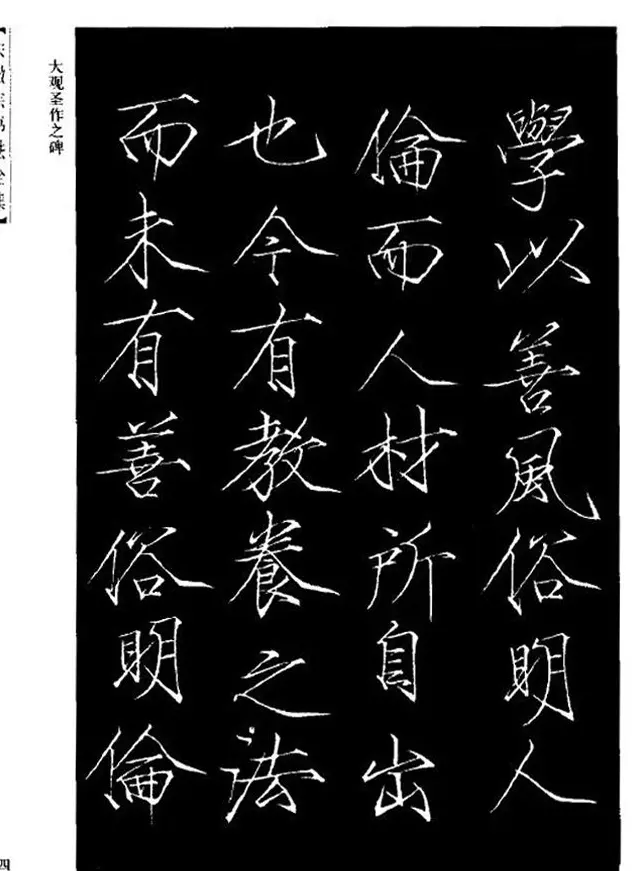 大观圣作之碑
學以善風俗明人
倫而人材所自出
也今有教養之法
而未有善俗明倫
四